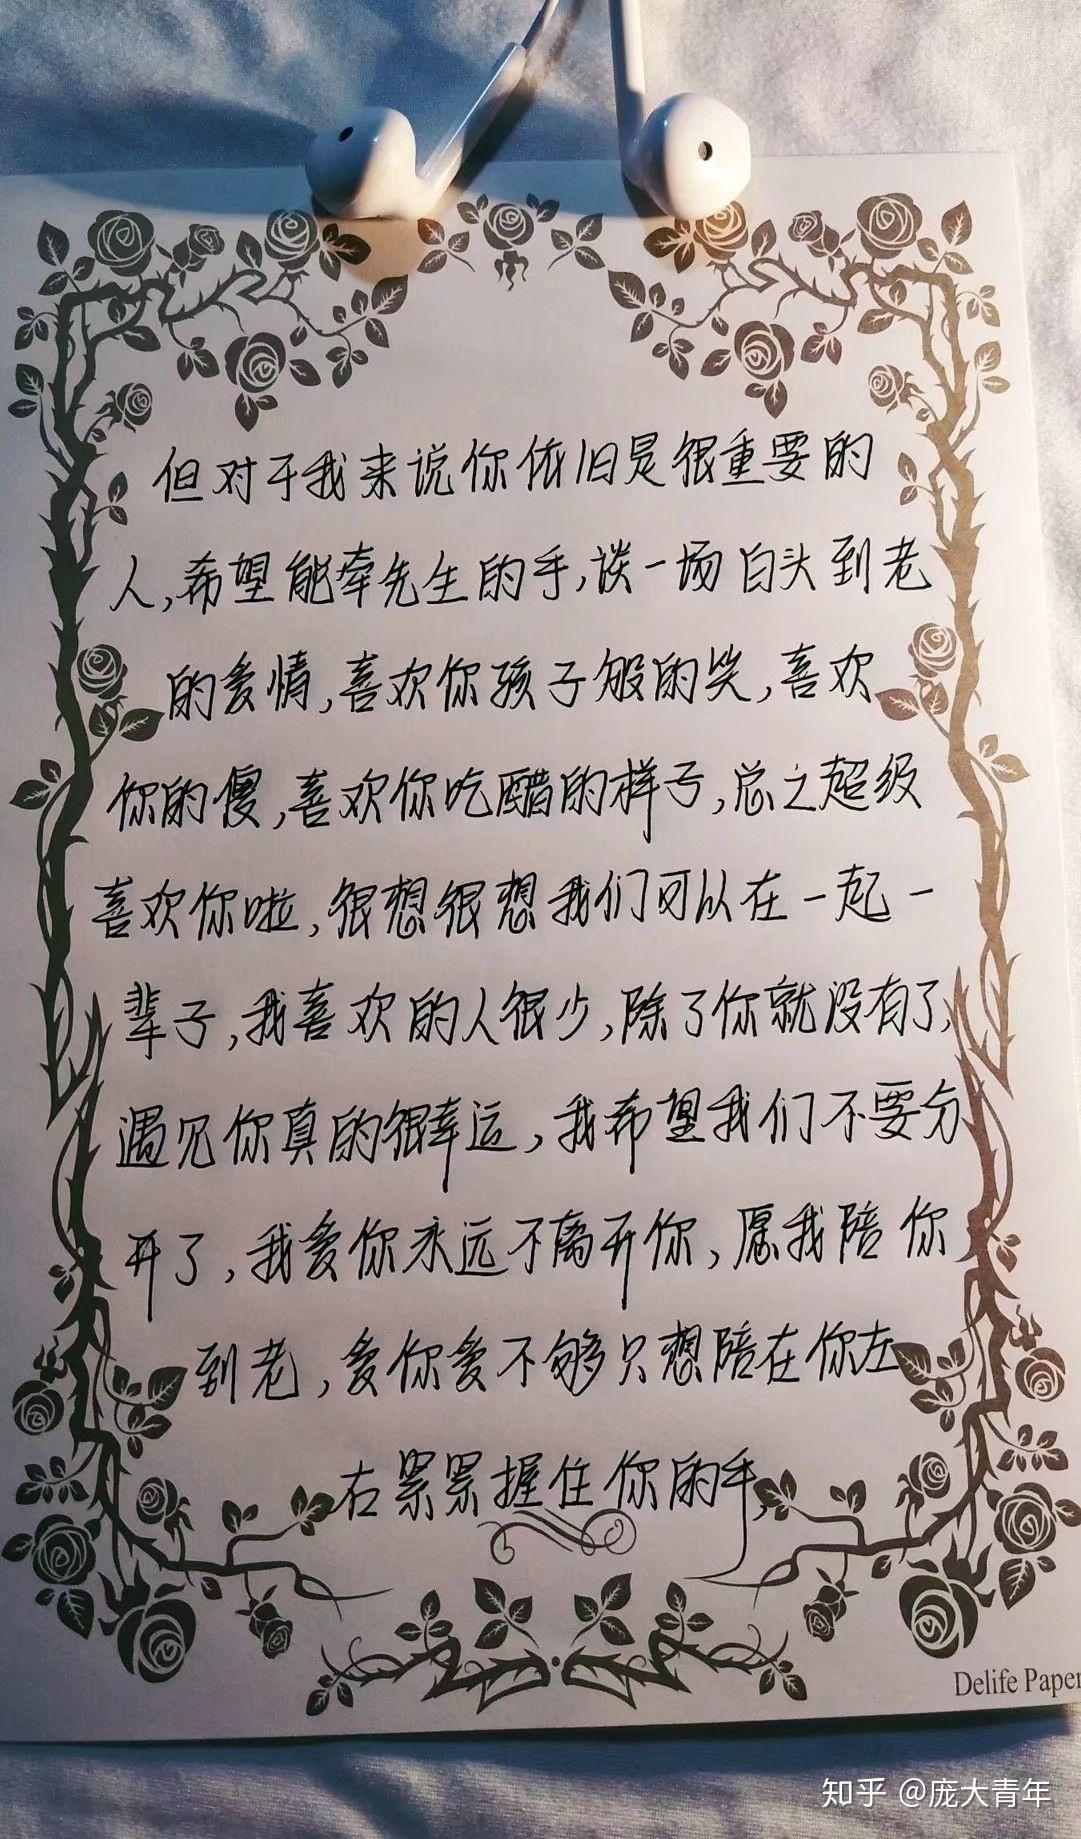 但对于我来说你依旧是很重要的
人,希望能牵先生的手,谈一场白头到老
的爱情,喜欢你孩子般的笑,喜欢
你的傻,喜欢你吃醋的样子,总之超级
喜欢你啦,很想很想我们可以在一起一
辈子,我喜欢的人很少,除了你就没有了,
遇见你真的很幸运,我希望我们不要分
开了,我爱你永远不离开你,愿我陪你
到老,爱你爱不够只想陪在你左
右紧紧握住你的手,
Delife Paper
知乎 @庞大青年